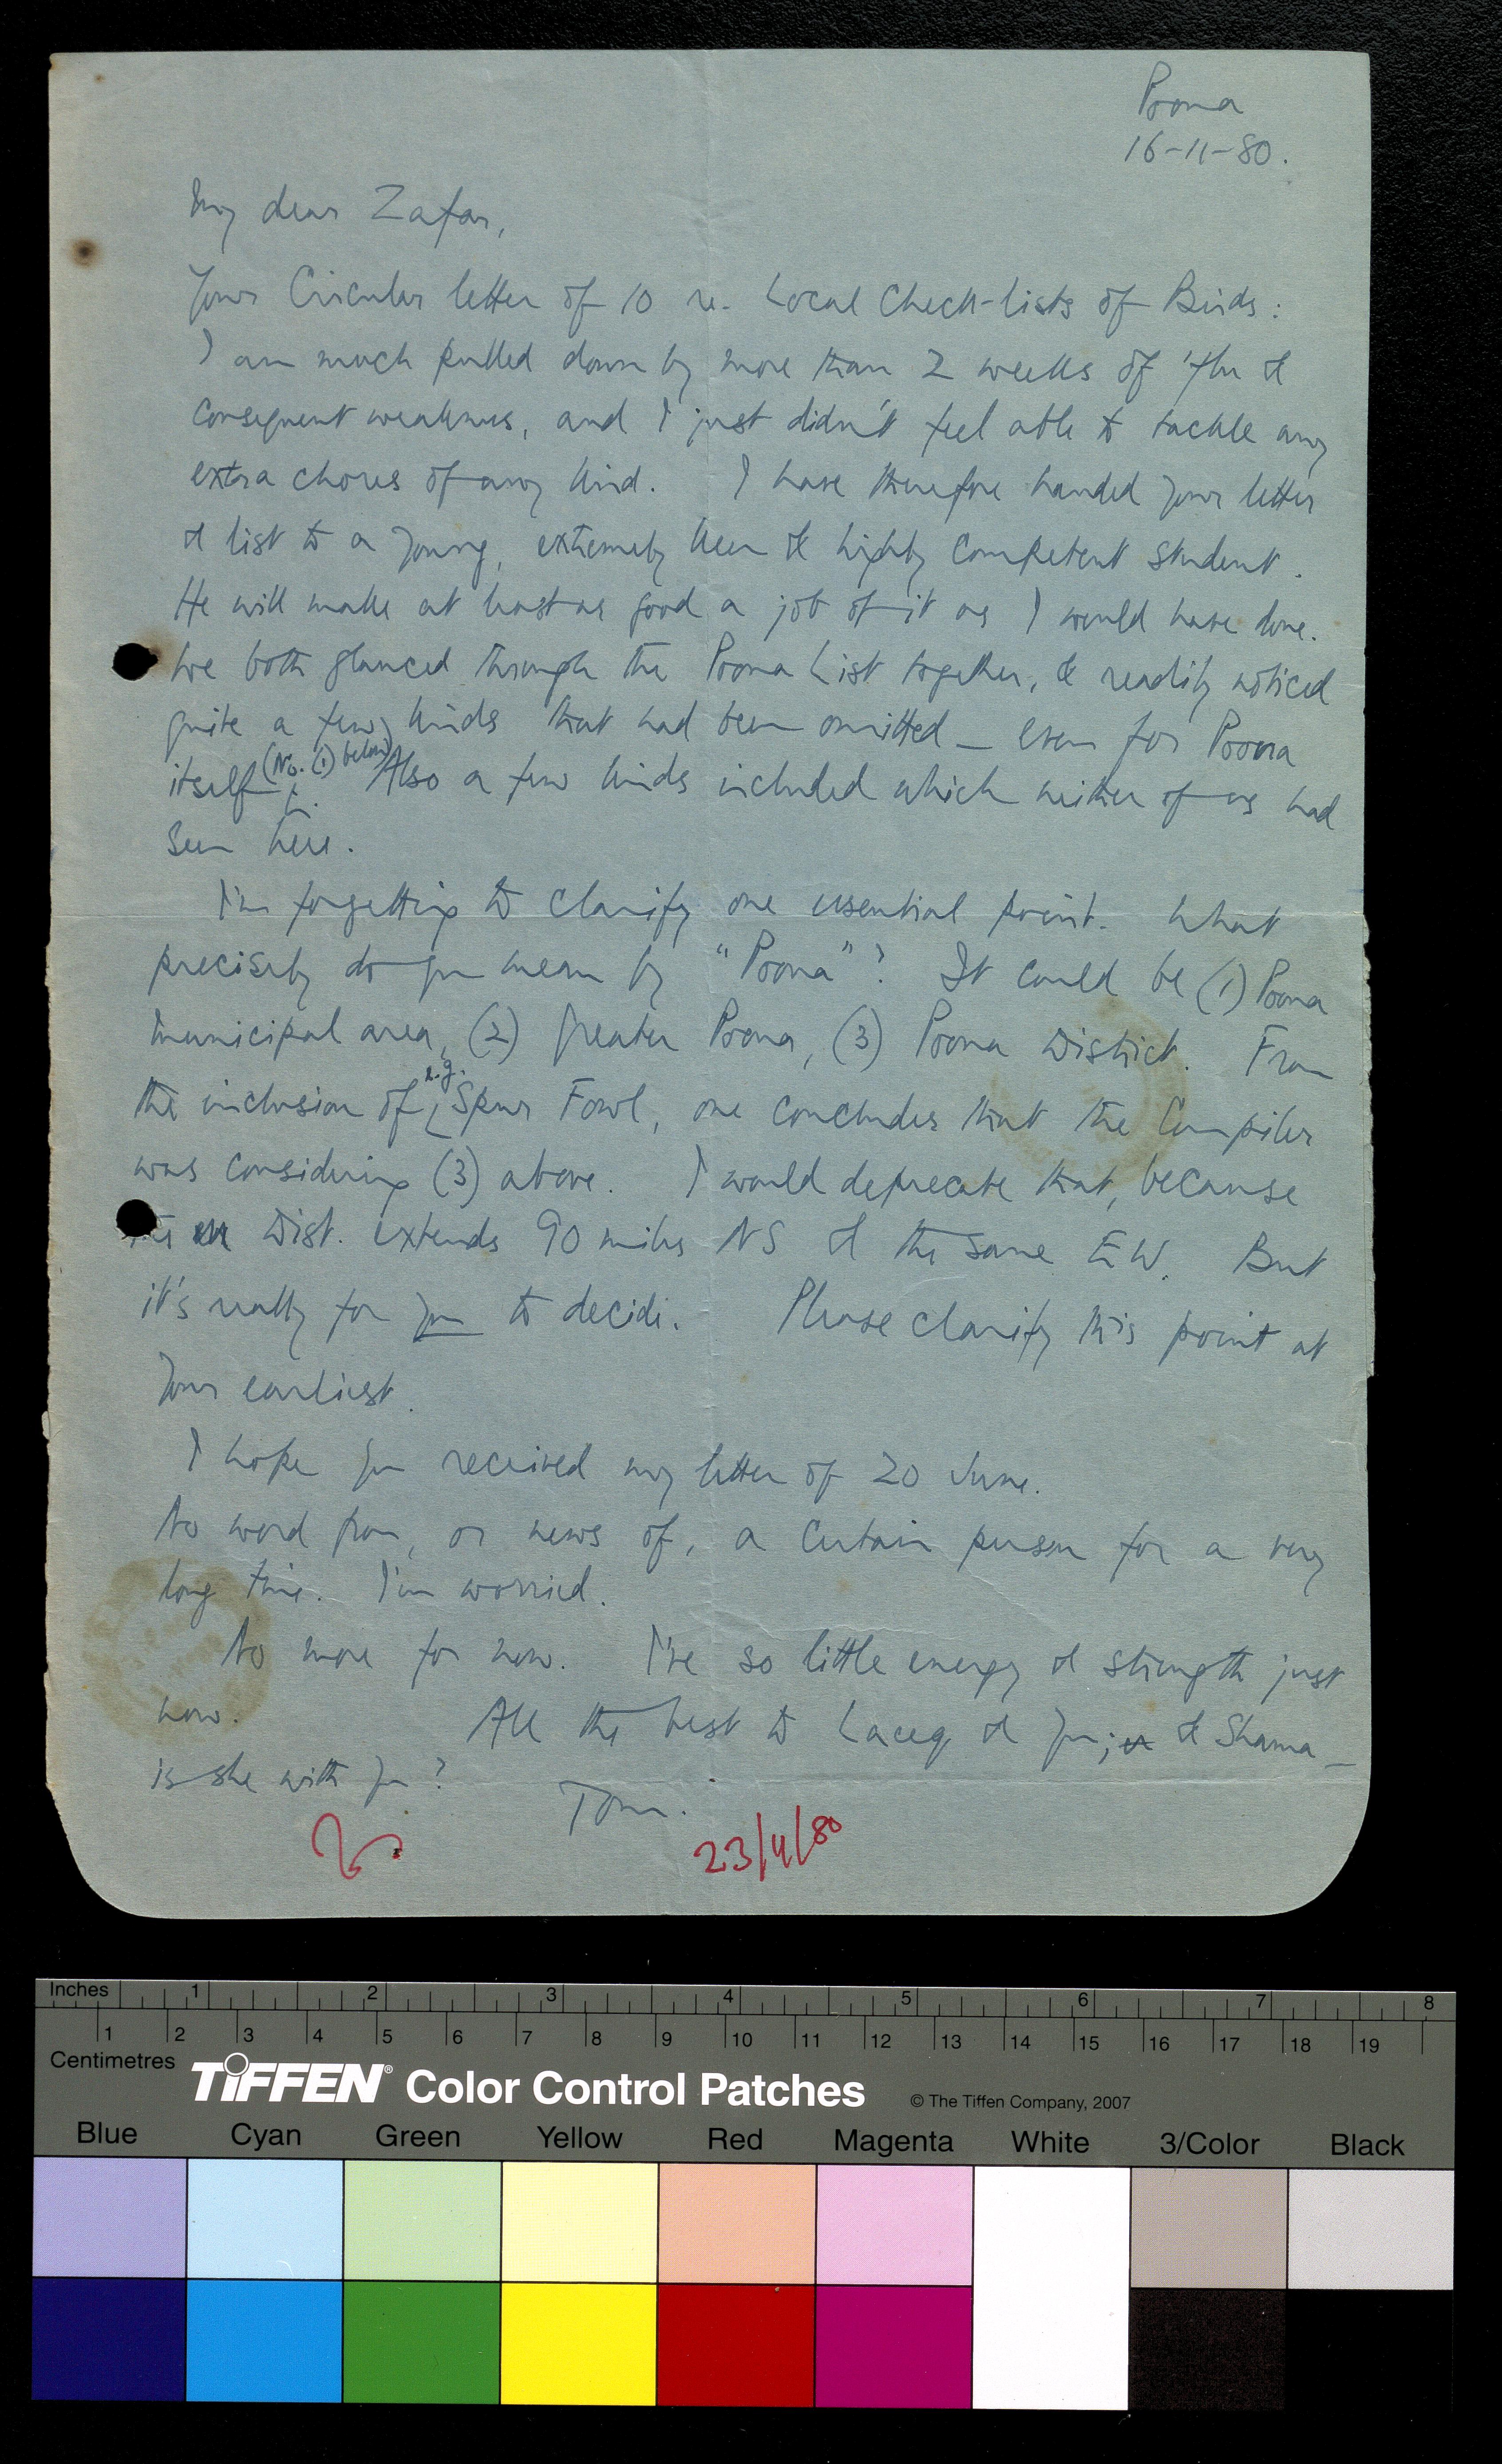 Poona
16-11-80.
My dear Zafar,
Your Circular letter of 10 re. Local Check-lists of Birds:
I am much pulled down by more than 2 weeks of 'flu &
consequent weakness, and I just didn't feel able to tackle any
extra chores of any kind. I have therefore handed your letter
& list to a young, extremely keen & highly competent student.
He will make at least as good a job of it as I would have done.
We both glanced through the Poona List together, & readily noticed
quite a few kinds that had been omitted — even for Poona
itself (No. (1) below). Also a few kinds included which neither of us had
seen here.
I'm forgetting to clarify one essential point. What
precisely do you mean by "Poona"? It could be (1) Poona
Municipal area, (2) Greater Poona, (3) Poona District. From
the inclusion of e.g. Spur Fowl, one concludes that the Compiler
was considering (3) above. I would deprecate that, because
the Dist. extends 90 miles NS & the same EW. But
it's really for you to decide. Please clarify this point at
your earliest.
I hope you received my letter of 20 June.
No word from, or news of, a certain person for a very
long time. I'm worried.
No more for now. I've so little energy & strength just
now. All the best to Laeeq & you; & Shama —
is she with you?
Tom.
23/4/80
Inches 1 2 3 4 5 6 7 8
1 2 3 4 5 6 7 8 9 10 11 12 13 14 15 16 17 18 19
Centimetres
TIFFEN® Color Control Patches © The Tiffen Company, 2007
Blue Cyan Green Yellow Red Magenta White 3/Color Black